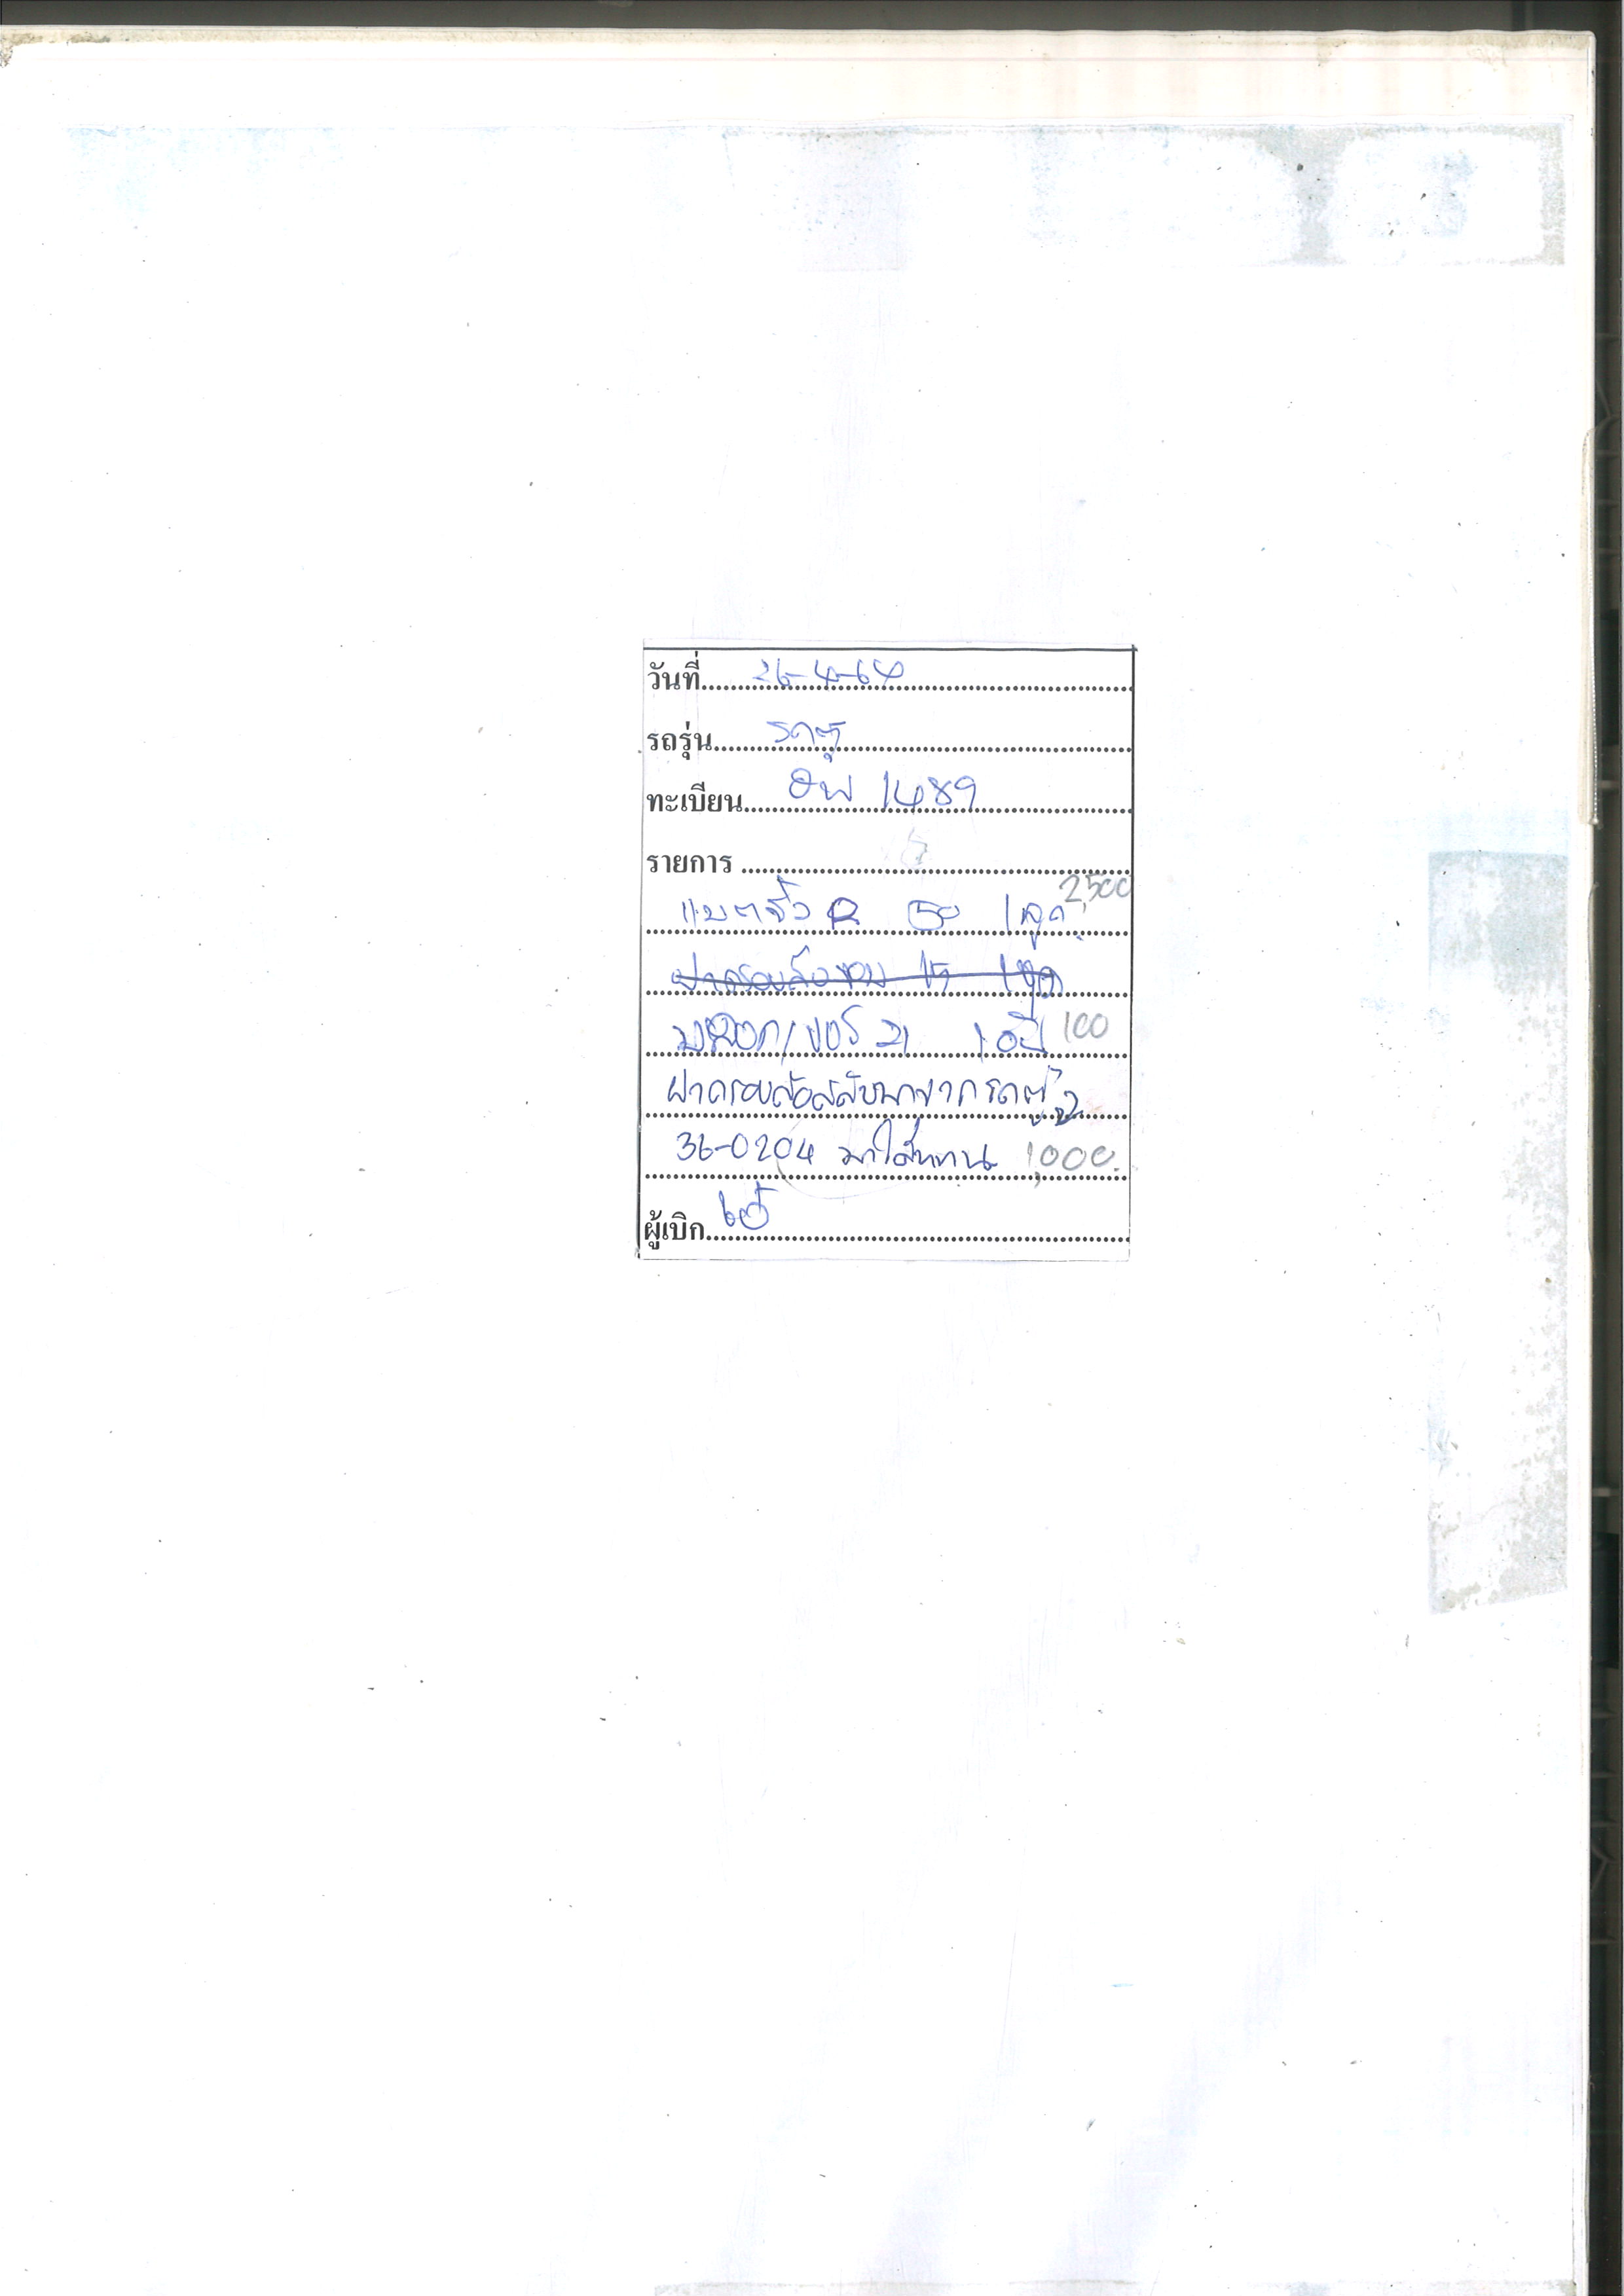 วันที่ 26-4-64
รถรุ่น รถตู้
ทะเบียน ฮพ 1489
รายการ
แบตจิ๋ว R 50 1 ลูก 2,500
ฝาครอบล้อขอบ 15 1 ชุด
เบอร์ 21 1 อัน 100
ฝาครอบล้อสลับมาจากรถตู้
36-0204 มาใส่แทน 1,000
ผู้เบิก เต้